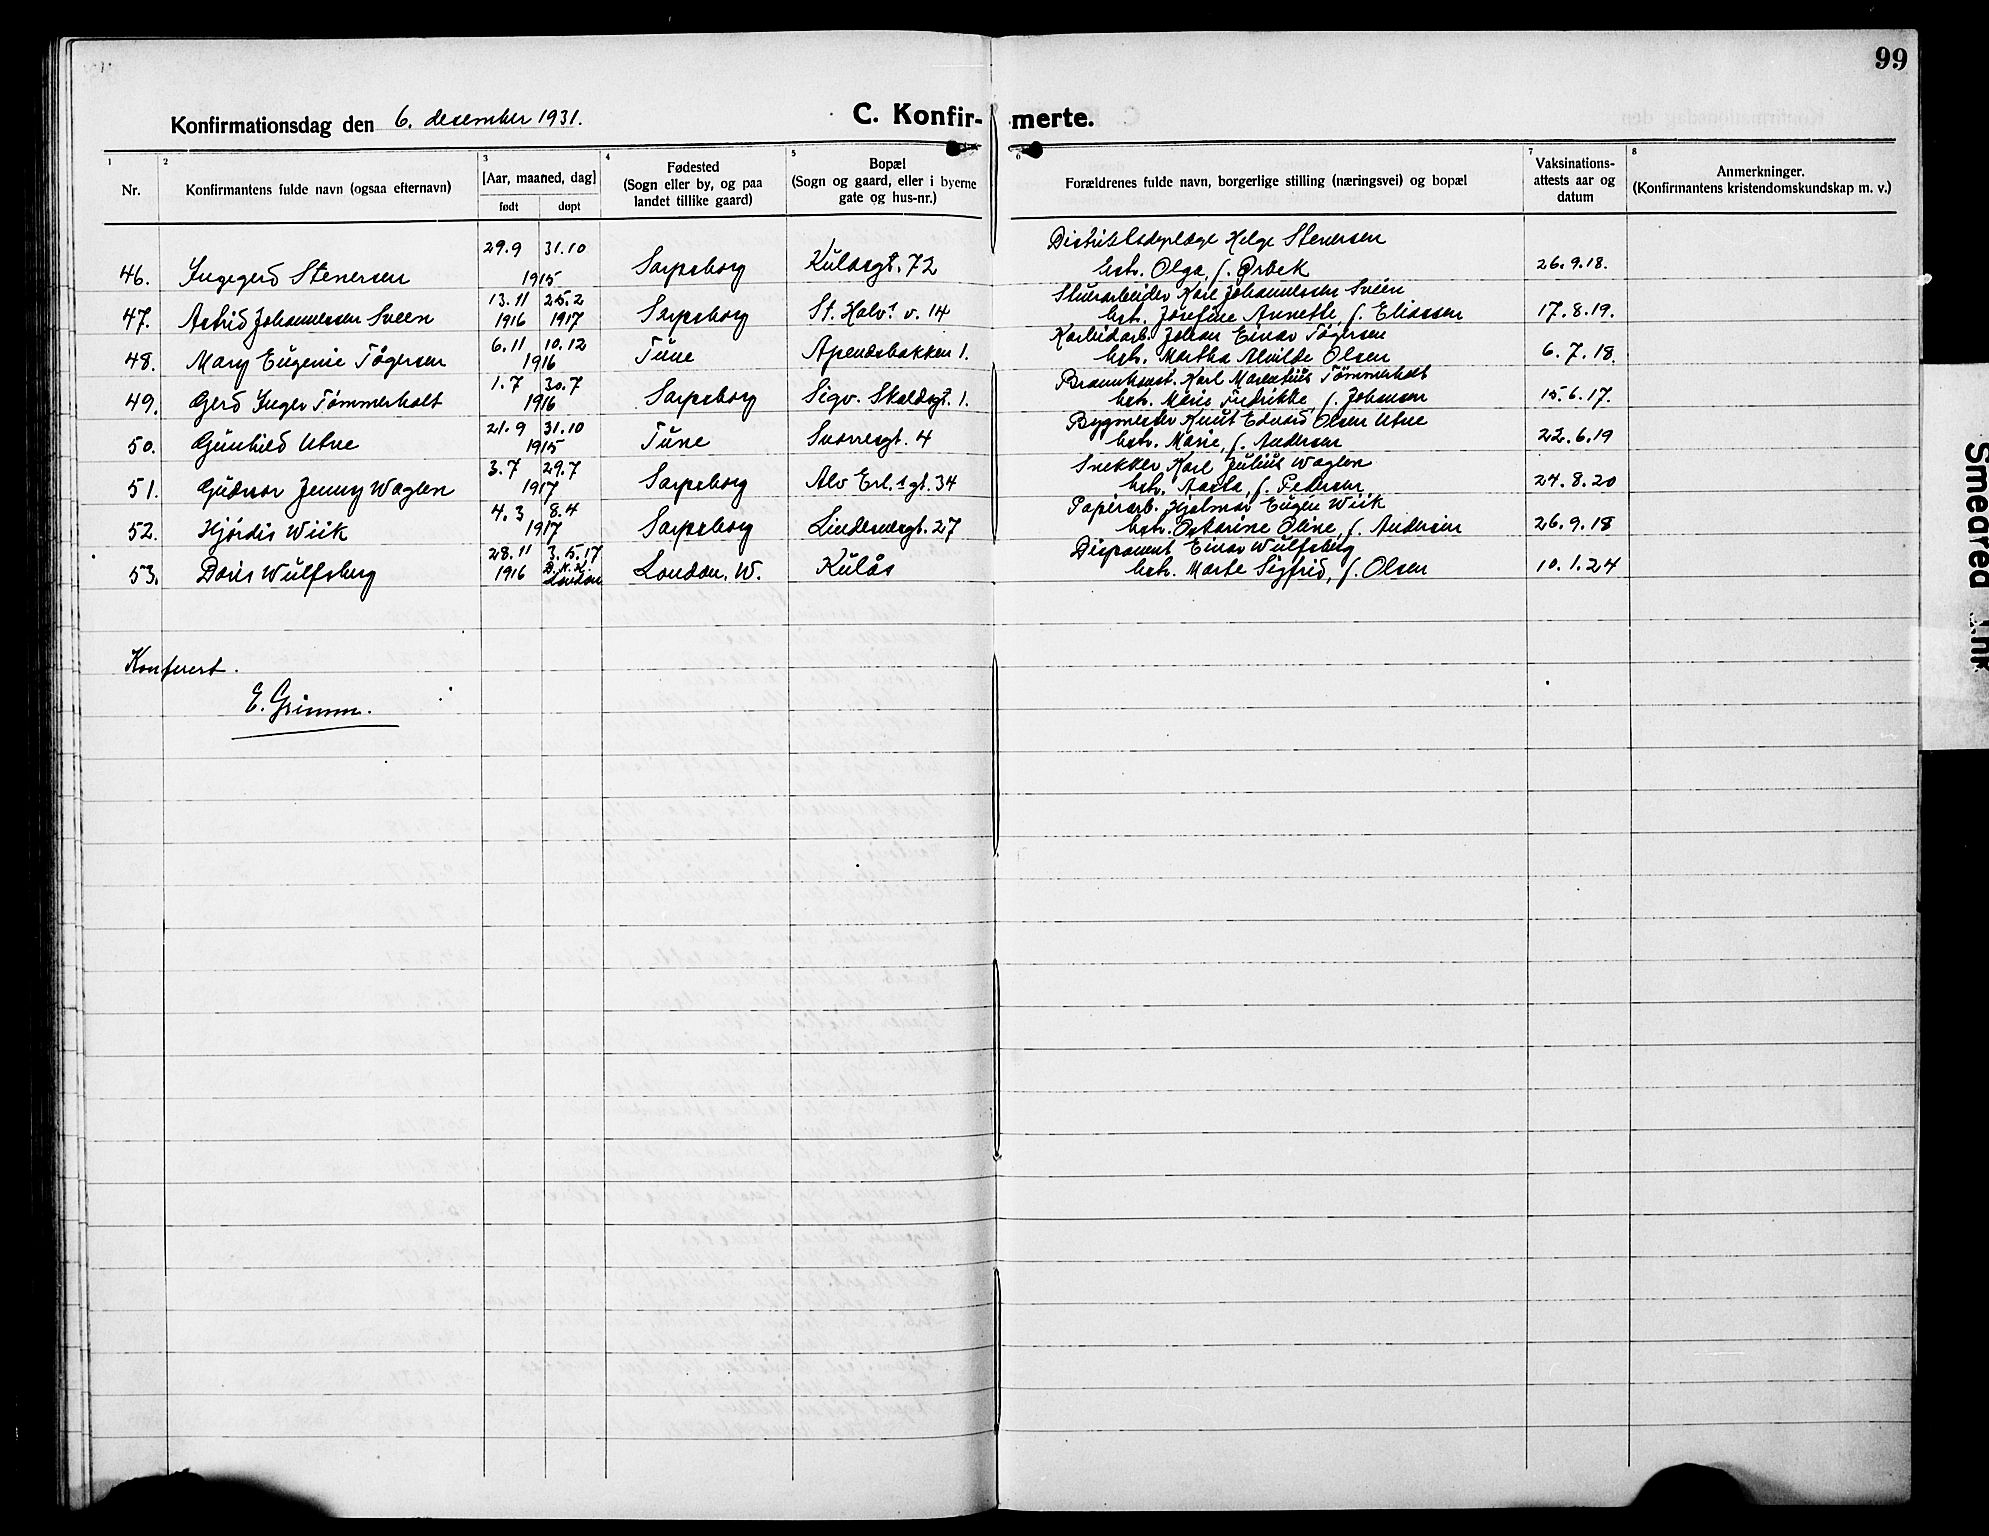 99
Konfirmationsdag den 6. desember 1931.
C. Konfir- merte.
1 2 3 4 5 6 7 8
Nr.
Konfirmantens fulde navn (ogsaa efternavn)
[Aar, maaned, dag]
født døpt
Fødested
(Sogn eller by, og paa
landet tillike gaard)
Bopæl
(Sogn og gaard, eller i byerne
gate og hus-nr.)
Forældrenes fulde navn, borgerlige stilling (næringsvei) og bopæl
Vaksinations-
attests aar og
datum
Anmerkninger.
(Konfirmantens kristendomskundskap m. v.)
29.9 31.10 Distriktslæge Helge Stenersen
46. Ingegerd Stenersen 1915 Sarpsborg Kulåsgt. 72 hstr. Olga, f. Ørbek 26.9.18.
13.11 25.2 Stuerarbeider Karl Johannessen Sveen
47. Astrid Johannessen Sveen 1916 1917 Sarpsborg St. Halv.s v. 14 hstr. Josefine Annette, f. Eliassen 17.8.19.
6.11 10.12 Karbidarb. Johan Einar Tøgersen
48. Mary Eugenie Tøgersen 1916 Tune Apendsbakken 1. hstr. Martha Alvilde Olsen 6.7.18.
1.7 30.7 Karl Marentius Tømmerholt
49. Gerd Inger Tømmerholt 1916 Sarpsborg Sigv. Skaldsgt. 1. hstr. Marie Fredrikke, f. Johansen 15.6.17.
21.9 31.10 Bygmester Knut Edvard Olsen Utne
50. Gunhild Utne 1915 Tune Snorresgt. 4 hstr. Marie, f. Andersen 22.6.19
3.7 29.7 Snekker Karl Julius Waglen
51. Gudrun Jenny Waglen 1917 Sarpsborg Alv Erl.s gt. 34 hstr. Aasta, f. Pedersen 24.8.20
4.3 8.4 Papirarb. Hjalmar Eugen Wiik
52. Hjørdis Wiik 1917 Sarpsborg Lindemosgt. 27 hstr. Oline, f. Andersen 26.9.18
28.11 3.5.17 Disponent Einar Wulfsberg
53. Doris Wulfsberg 1916 London London, W. Kulås hstr. Marte Sigfrid, f. Olsen 10.1.24
Konferert.
E. Grimm.
Smeared Ink